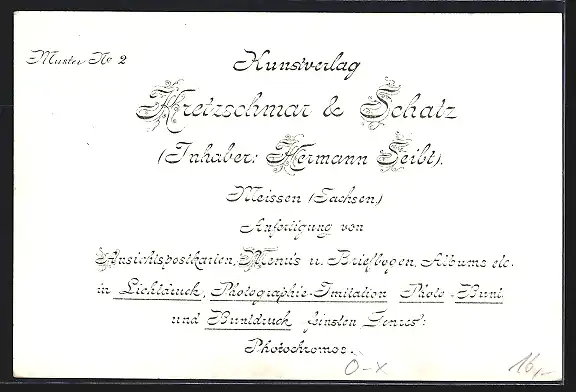 Muster No 2
Kunstverlag
Kretzschmar & Schatz
(Inhaber: Hermann Seibt).
Meissen (Sachsen.)
Anfertigung von
Ansichtspostkarten, Menüs u. Briefbogen, Albums etc.
in Lichtdruck, Photographie-Imitation Photo-Bunt
und Buntdruck feinsten Genres:
Photochromos.
O-X
16,-